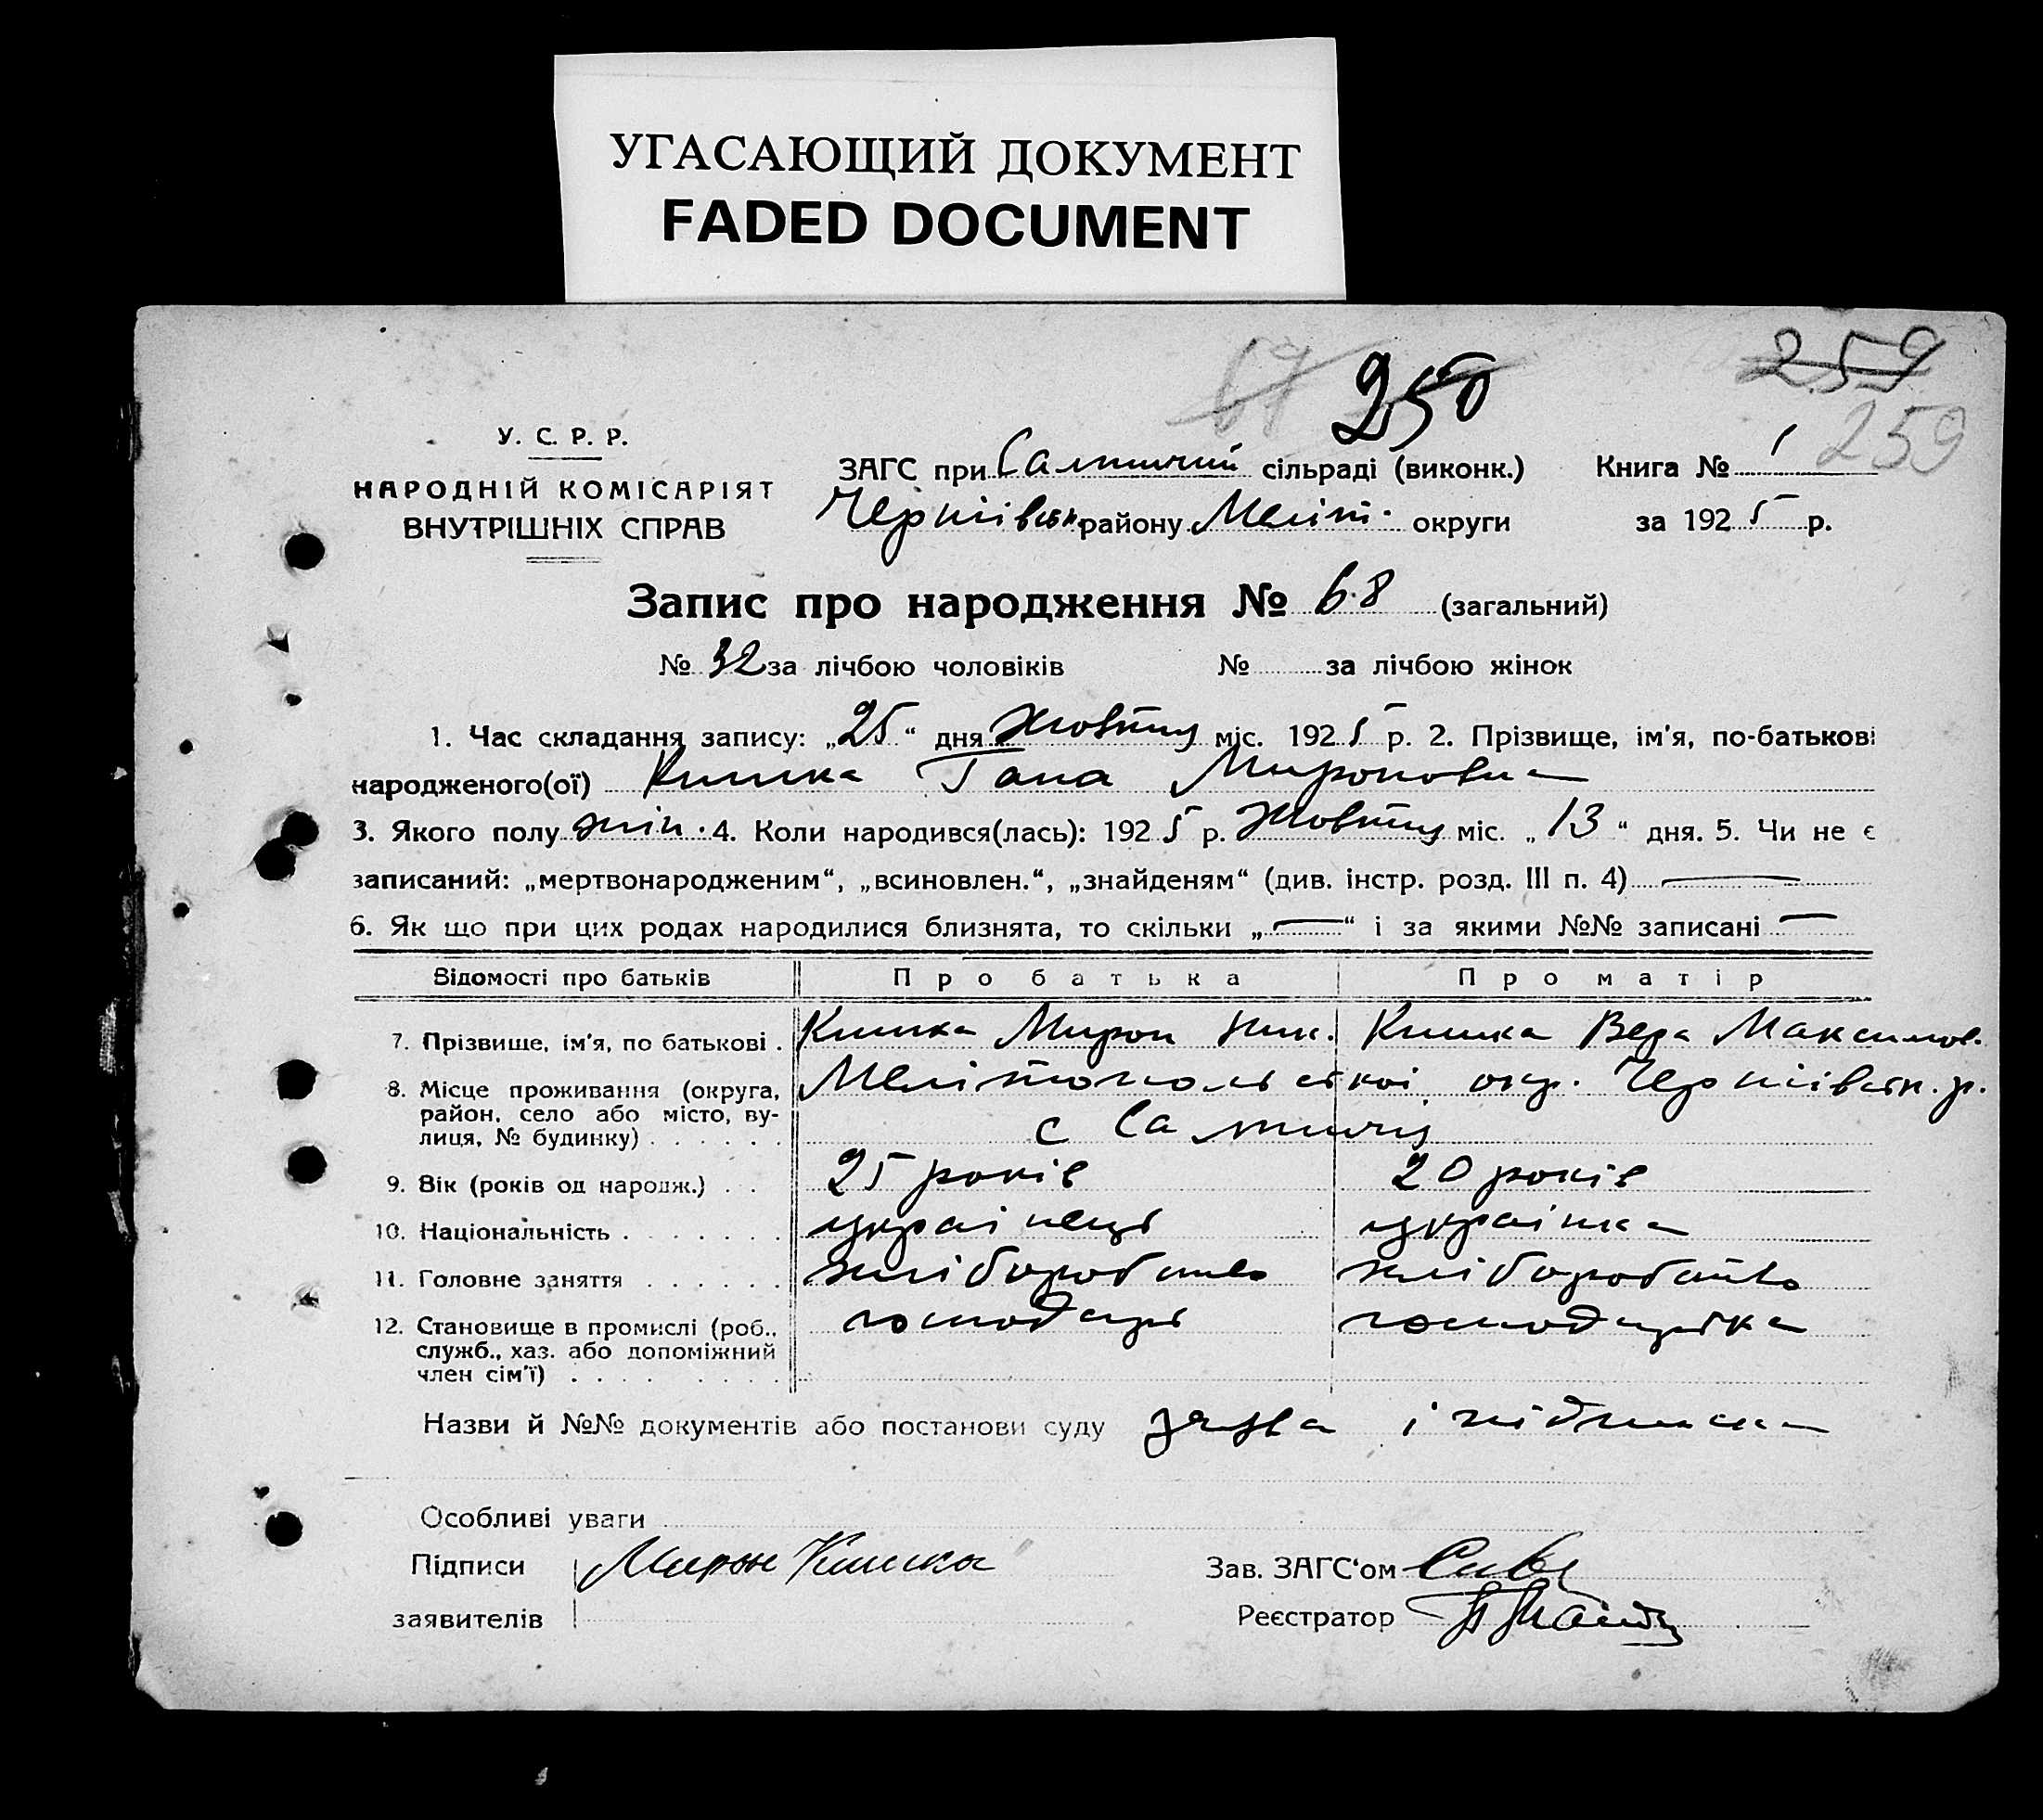 УГАСАЮЩИЙ ДОКУМЕНТ
FADED DOCUMENT
67 250 259
259
У. С. Р. Р.
НАРОДНІЙ КОМІСАРІЯТ
ВНУТРІШНІХ СПРАВ
ЗАГС при Салтичій сільраді (виконк.) Книга № 1
Чернігівськ. району Меліт. округи за 1925 р.
Запис про народження № 68 (загальний)
№ 32 за лічбою чоловіків № за лічбою жінок
1. Час складання запису: „25“ дня Жовтня міс. 1925 р. 2. Прізвище, ім'я, по-батькові
народженого(ої) Кишка Гана Мироновна
3. Якого полу жін. 4. Коли народився(лась): 1925 р. Жовтня міс. „13“ дня. 5. Чи не є
записаний: „мертвонародженим“, „всиновлен.“, „знайденям“ (див. інстр. розд. III п. 4) —
6. Як що при цих родах народилися близнята, то скільки „—“ і за якими №№ записані —
Відомості про батьків Про батька Про матір
7. Прізвище, ім'я, по батькові . Кишка Мирон Ник. Кишка Вера Максимов.
8. Місце проживання (округа, район, село або місто, вулиця, № будинку) . . . . . . Мелітопольської окр. Чернігівськ. р.
с Салтичия
9. Вік (років од народж.) . . 25 років 20 років
10. Національність . . . . . . . українець українка
11. Головне заняття . . . . . . хліборобство хліборобство
12. Становище в промислі (роб., служб., хаз. або допоміжний член сім'ї) . . . . . . . . господарь господарька
Назви й №№ документів або постанови суду заява і підписка
Особливі уваги
Підписи Мирон Кишка Зав. ЗАГС'ом
заявителів Реєстратор